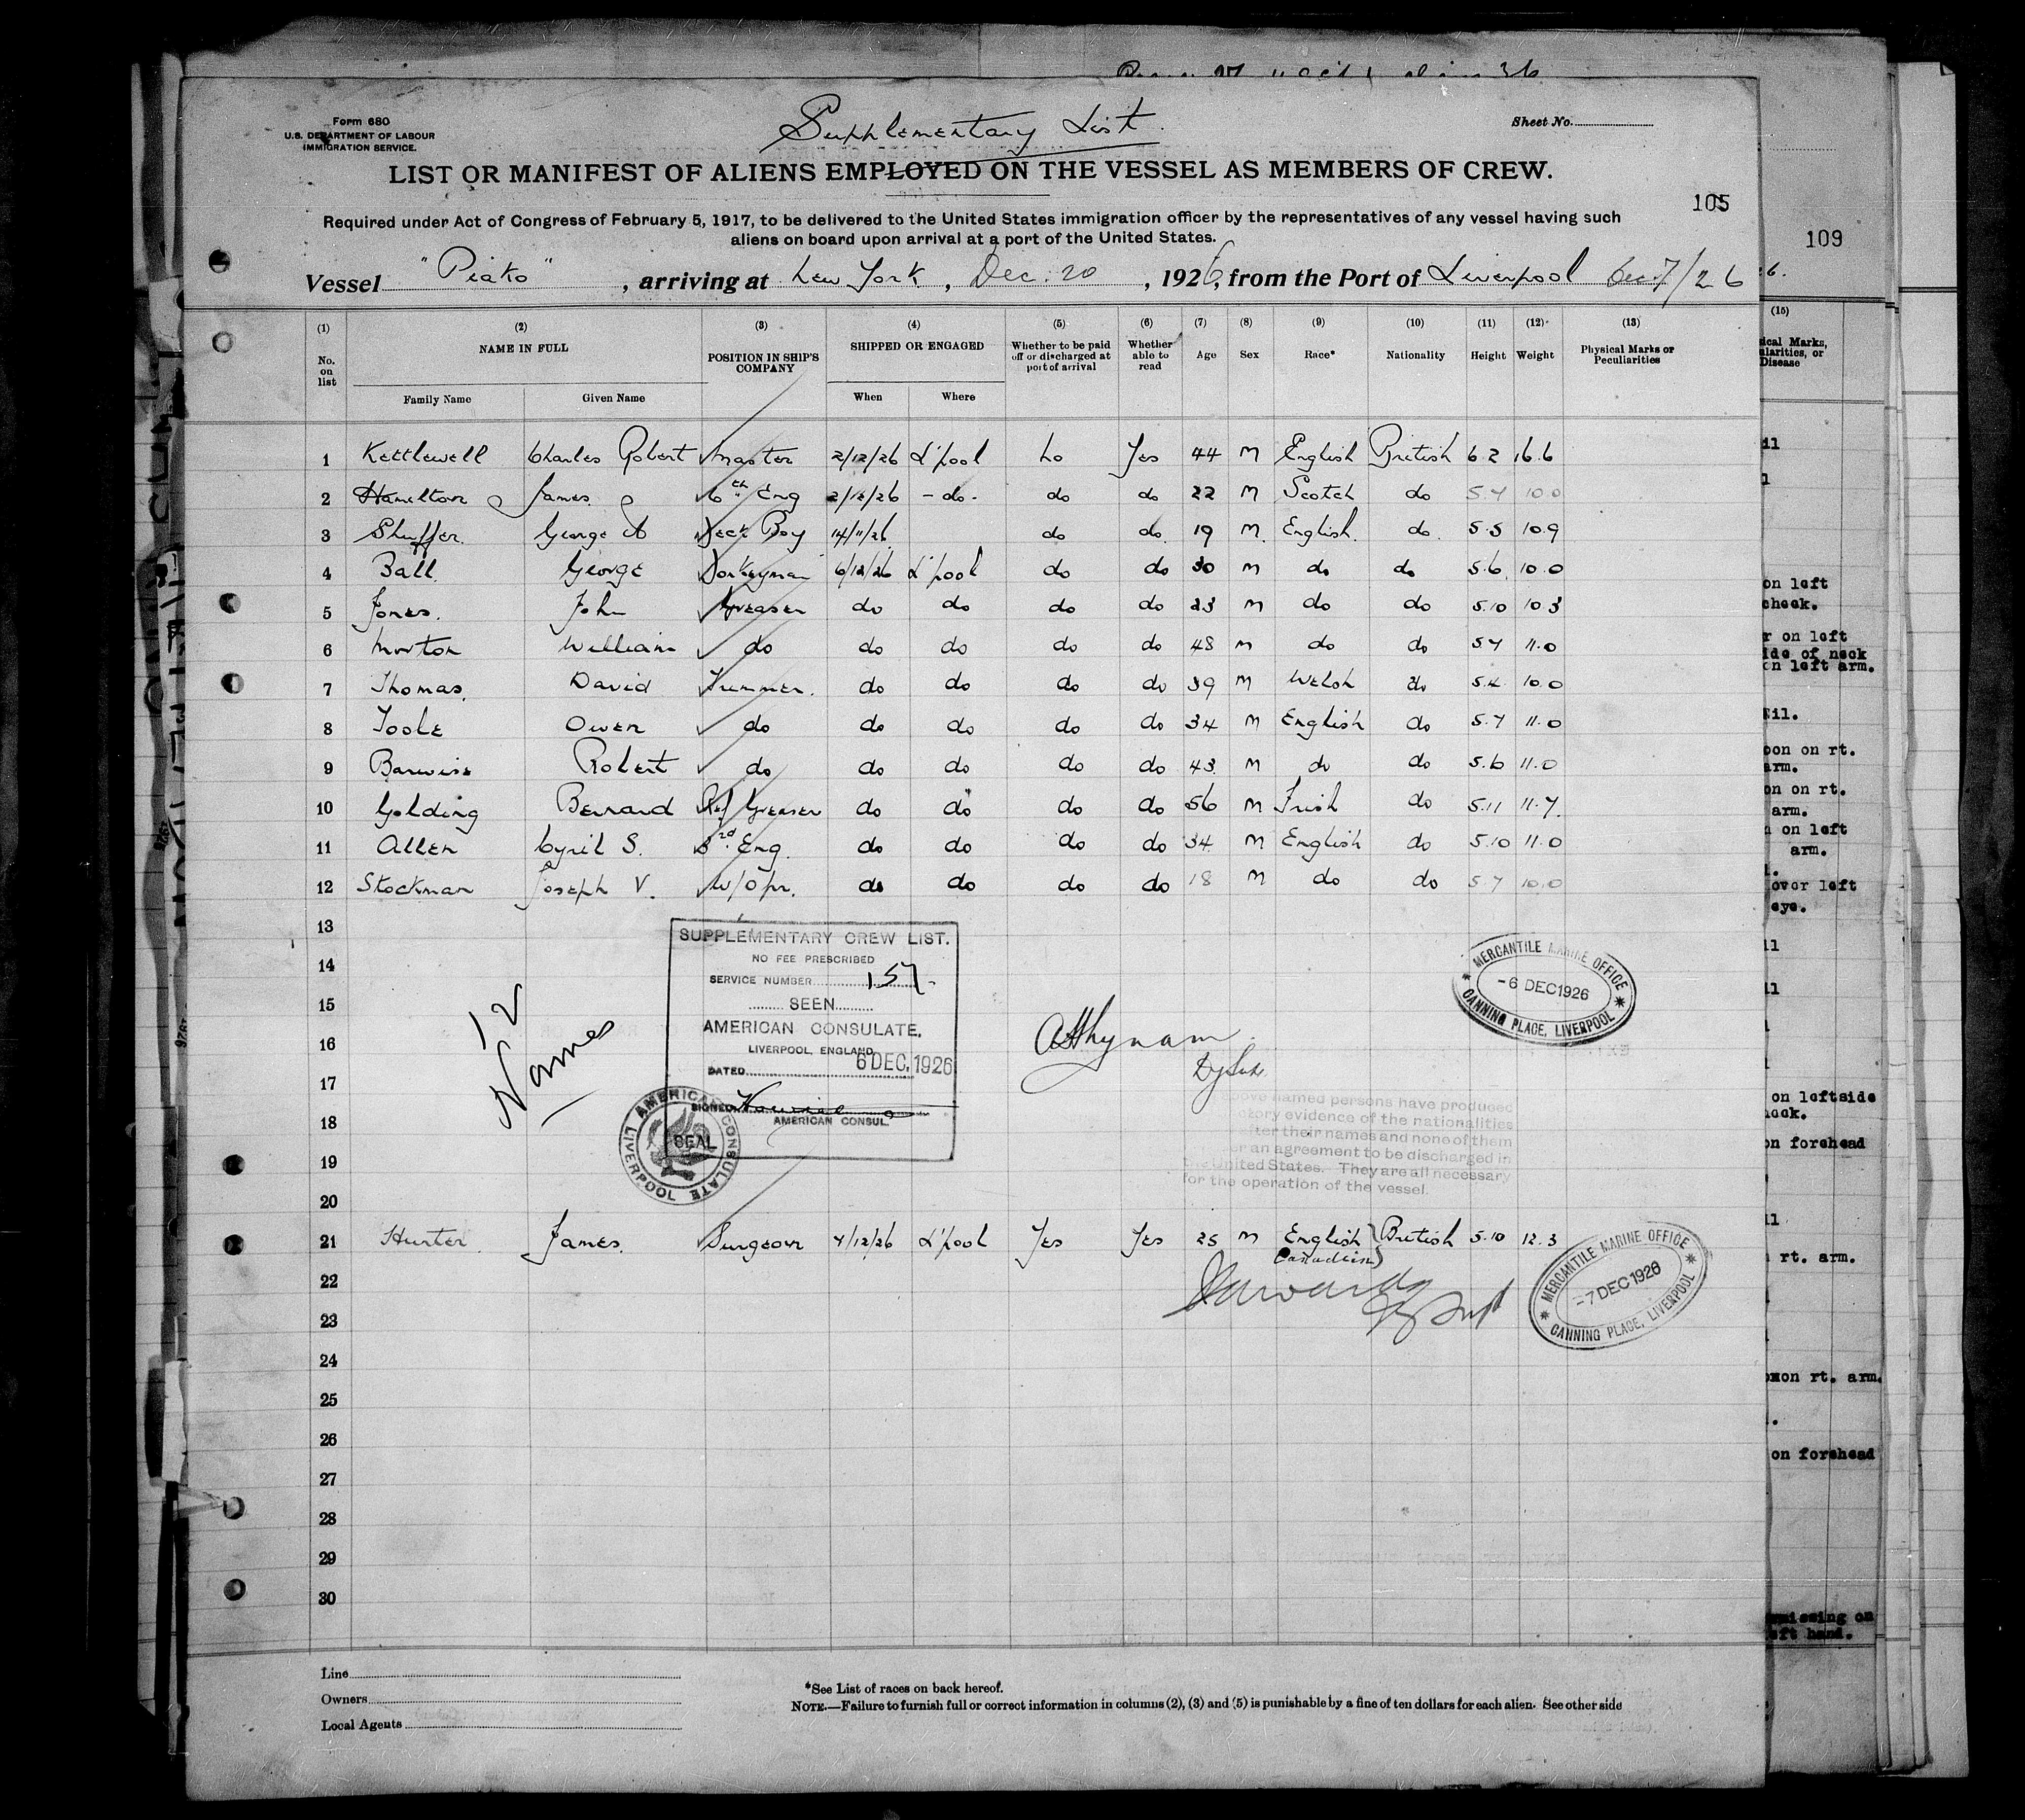 Form 680
U.S. DEPARTMENT OF LABOUR
IMMIGRATION SERVICE.
Supplementary List
Sheet No.
LIST OR MANIFEST OF ALIENS EMPLOYED ON THE VESSEL AS MEMBERS OF CREW.
105
109
Required under Act of Congress of February 5, 1917, to be delivered to the United States immigration officer by the representatives of any vessel having such
aliens on board upon arrival at a port of the United States.
Vessel "Piako", arriving at New York, Dec. 20, 1926, from the Port of Liverpool Dec 7/26
(1) (2) (3) (4) (5) (6) (7) (8) (9) (10) (11) (12) (13)
No. on list NAME IN FULL POSITION IN SHIP'S COMPANY SHIPPED OR ENGAGED Whether to be paid off or discharged at port of arrival Whether able to read Age Sex Race* Nationality Height Weight Physical Marks or Peculiarities
Family Name Given Name When Where
1 Kettlewell Charles Robert Master 2/12/26 L'pool No Yes 44 M English British 6.2 16.6
2 Hamilton James 6th Eng 2/12/26 -do- do do 22 M Scotch do 5.7 10.0
3 George A Deck Boy 14/11/26 do do 19 M English do 5.5 10.9
4 Ball George Donkeyman 6/12/26 L'pool do do 30 M do do 5.6 10.0
5 Jones John Greaser do do do do 23 M do do 5.10 10.3
6 Morton William do do do do do 48 M do do 5.7 11.0
7 Thomas David Trimmer do do do do 39 M Welsh do 5.4 10.0
8 Toole Owen do do do do do 34 M English do 5.7 11.0
9 Barwise Robert do do do do do 43 M do do 5.6 11.0
10 Golding Bernard Ref Greaser do do do do 56 M Irish do 5.11 11.7
11 Allen Cyril S. 3rd Eng. do do do do 34 M English do 5.10 11.0
12 Stockman Joseph V. W/Opr. do do do do 18 M do do 5.7 10.0
13
14
15
16
17
18
19
20
12
Names
SUPPLEMENTARY CREW LIST.
NO FEE PRESCRIBED
SERVICE NUMBER 157
SEEN
AMERICAN CONSULATE,
LIVERPOOL, ENGLAND
DATED 6 DEC. 1926
SIGNED
AMERICAN CONSUL.
AMERICAN CONSULATE LIVERPOOL
SEAL
MERCANTILE MARINE OFFICE
-6 DEC 1926
CANNING PLACE, LIVERPOOL
above named persons have produced
evidence of the nationalities
after their names and none of them
an agreement to be discharged in
the United States. They are all necessary
for the operation of the vessel.
21 Hunter James Surgeon 7/12/26 L'pool Yes Yes 25 M English British 5.10 12.3
Canadian
MERCANTILE MARINE OFFICE
-7 DEC 1926
CANNING PLACE, LIVERPOOL
22
23
24
25
26
27
28
29
30
Line
Owners
Local Agents
*See List of races on back hereof.
NOTE.—Failure to furnish full or correct information in columns (2), (3) and (5) is punishable by a fine of ten dollars for each alien. See other side
(15)
Disease
on left
cheek.
on left
ide of neck
on left arm.
Nil.
on rt.
arm.
on rt.
arm.
on left
arm.
over left
eye.
on leftside
on forehead
rt. arm.
on rt. arm.
on forehead
missing on
left hand.